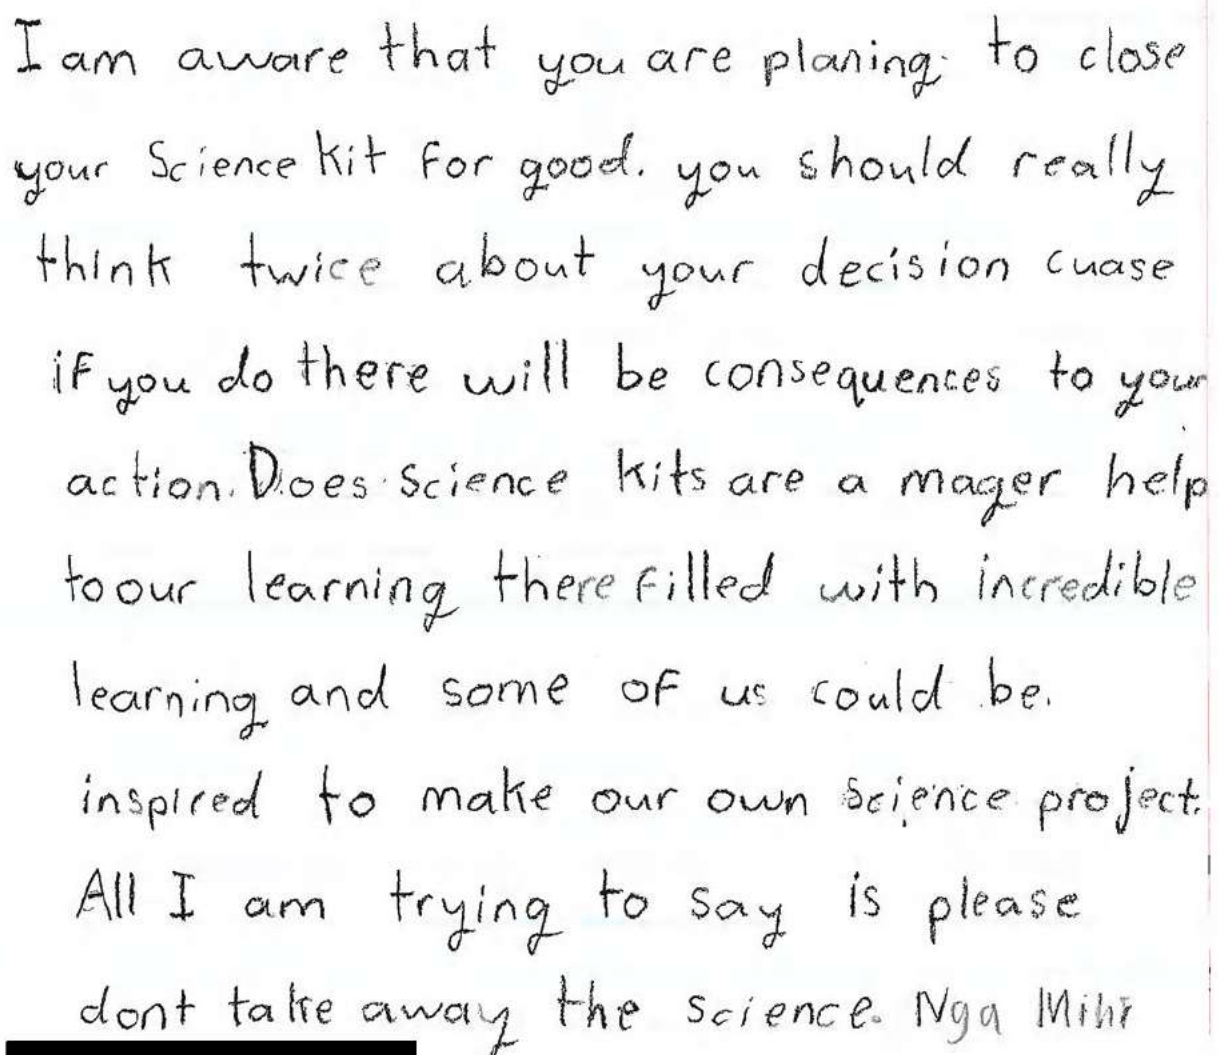 I am aware that you are planing to close
your Science kit for good. you should really
think twice about your decision cuase
if you do there will be consequences to your
action. Does science kits are a mager help
to our learning there filled with incredible
learning and some of us could be.
inspired to make our own science project.
All I am trying to say is please
dont take away the science. Nga Mihi